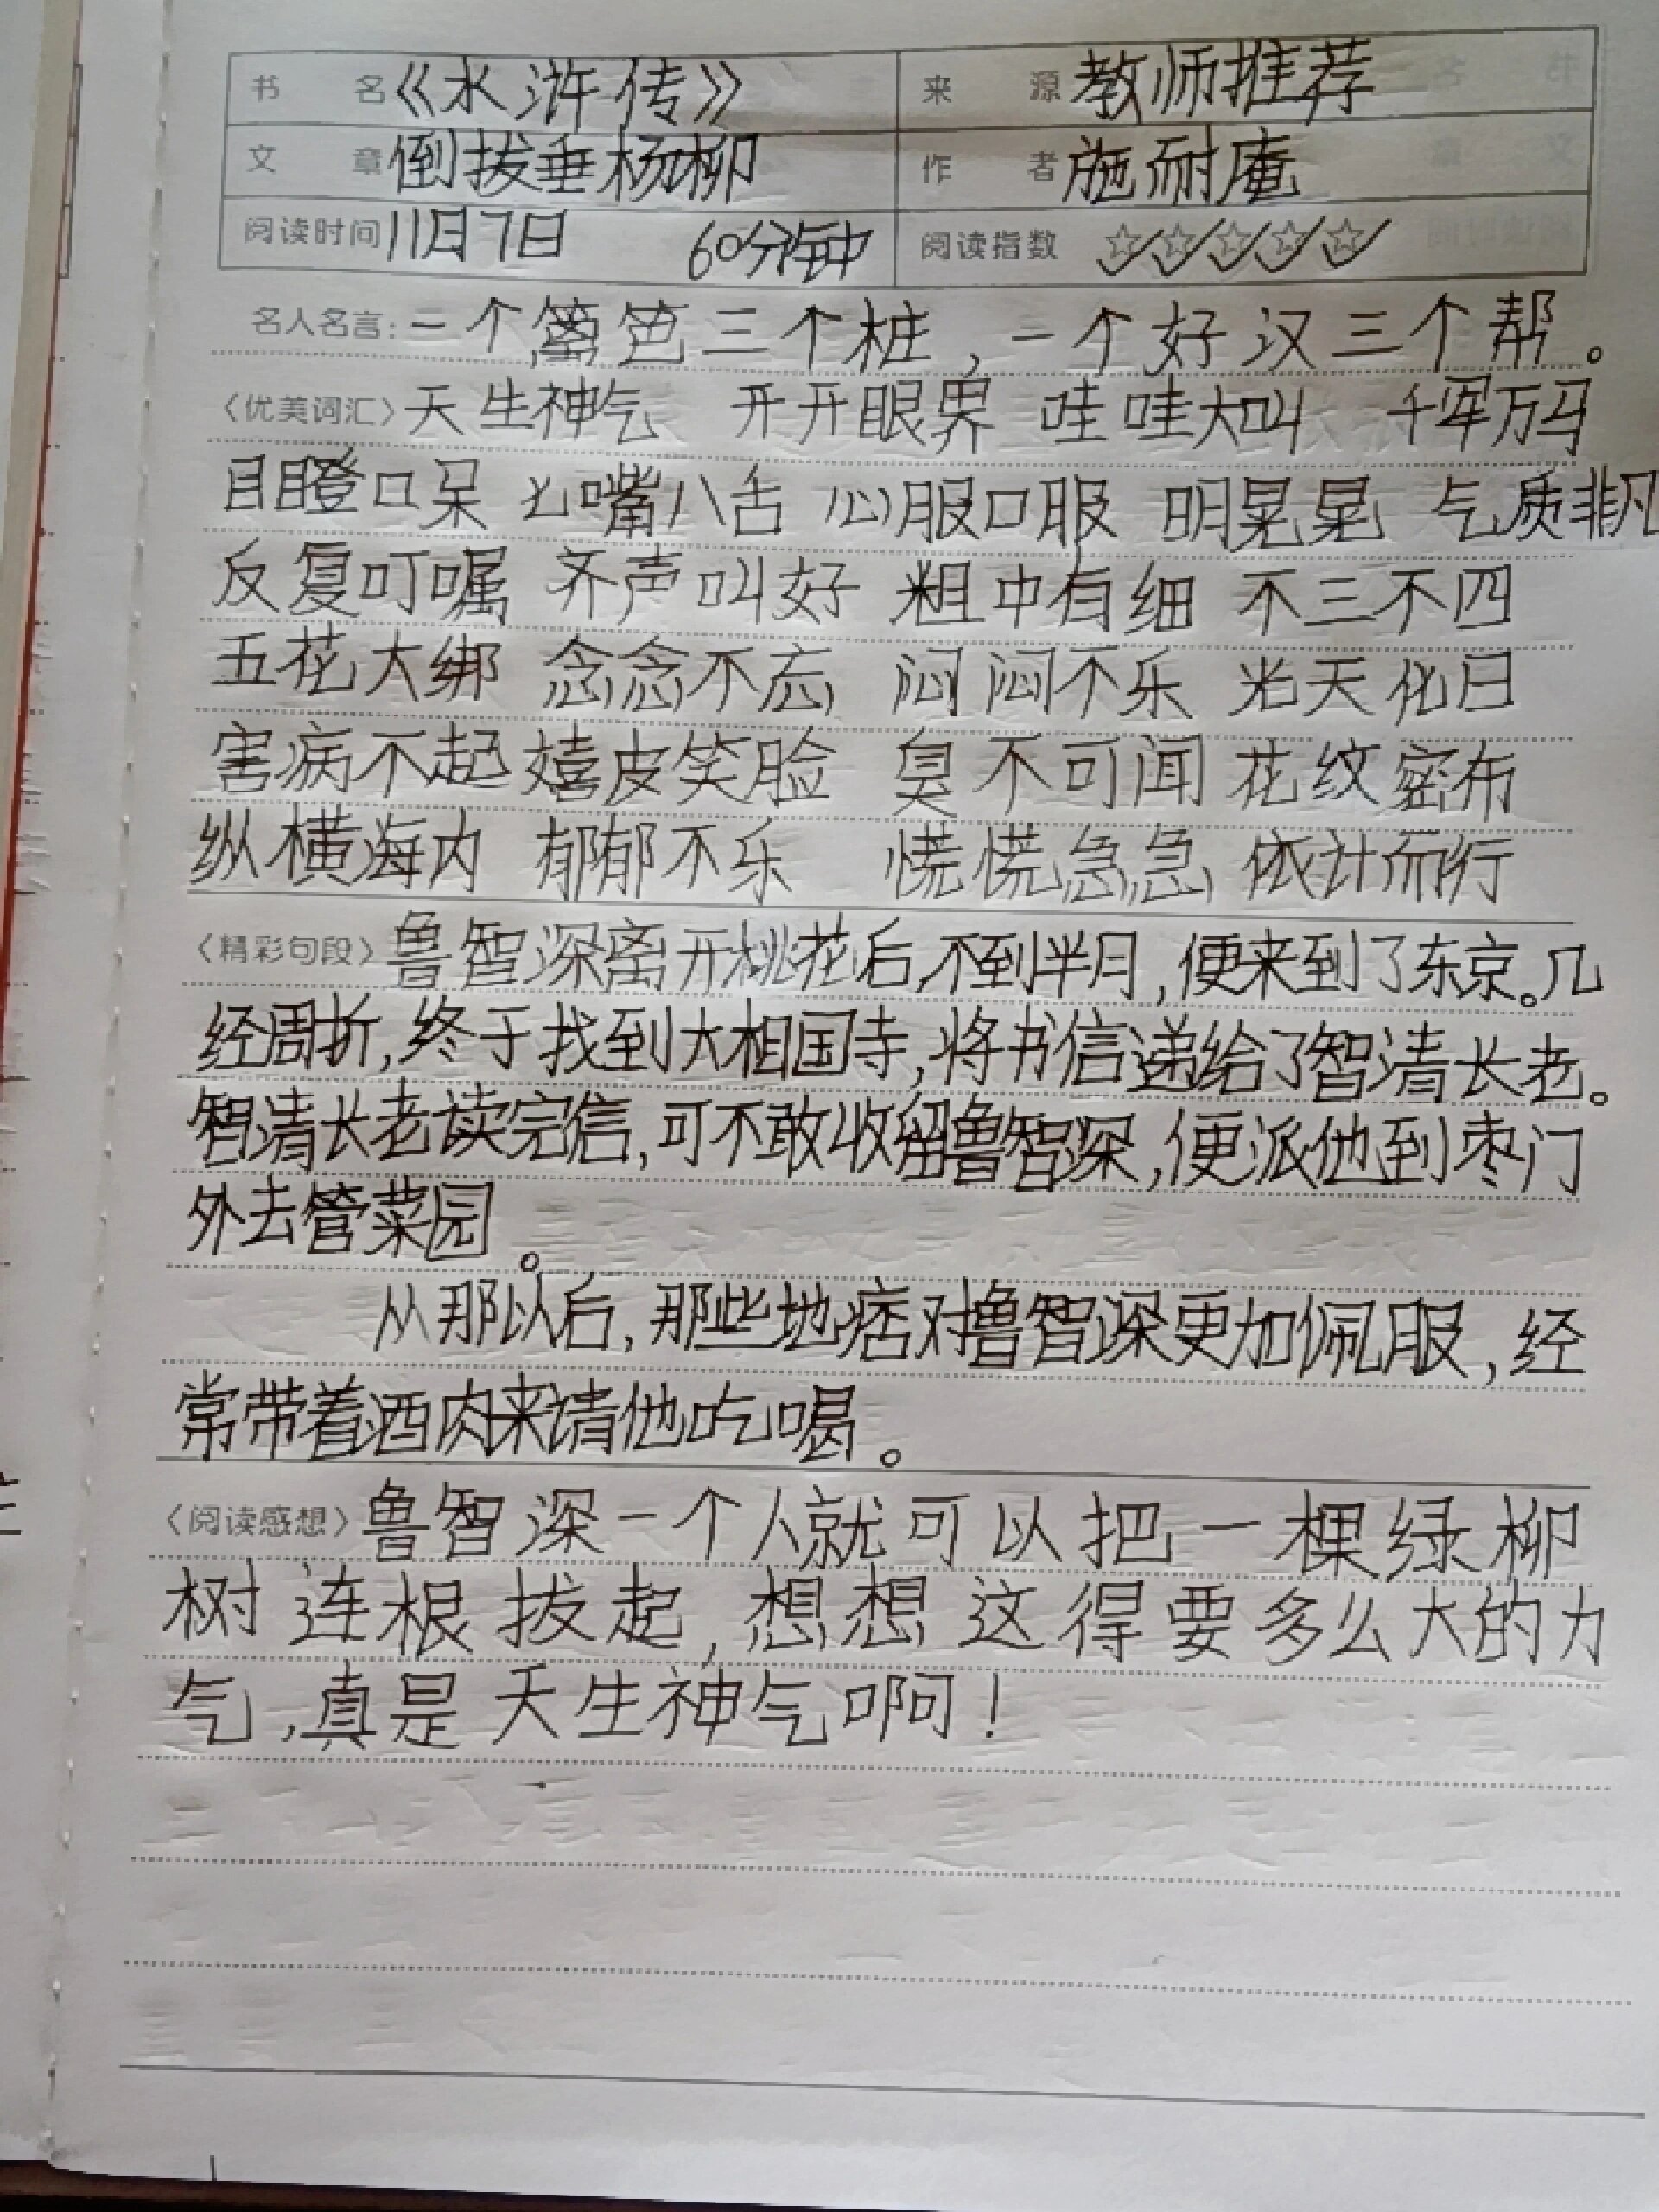 书 名 《水浒传》 来 源 教师推荐
文 章 倒拔垂杨柳 作 者 施耐庵
阅读时间 11月7日 60分钟 阅读指数 ☆☆☆☆☆
名人名言：一个篱笆三个桩，一个好汉三个帮。
〈优美词汇〉天生神气 开开眼界 哇哇大叫 千军万马
目瞪口呆 七嘴八舌 心服口服 明晃晃 气质非凡
反复叮嘱 齐声叫好 粗中有细 不三不四
五花大绑 念念不忘 闷闷不乐 光天化日
害病不起 嬉皮笑脸 臭不可闻 花纹密布
纵横海内 郁郁不乐 慌慌急急 依计而行
〈精彩句段〉鲁智深离开桃花后，不到半月，便来到了东京。几
经周折，终于找到大相国寺，将书信递给了智清长老。
智清长老读完信，可不敢收留鲁智深，便派他到枣门
外去管菜园。
从那以后，那些地痞对鲁智深更加佩服，经
常带着酒肉来请他吃喝。
〈阅读感想〉鲁智深一个人就可以把一棵绿柳
树连根拔起，想想这得要多么大的力
气，真是天生神气啊！